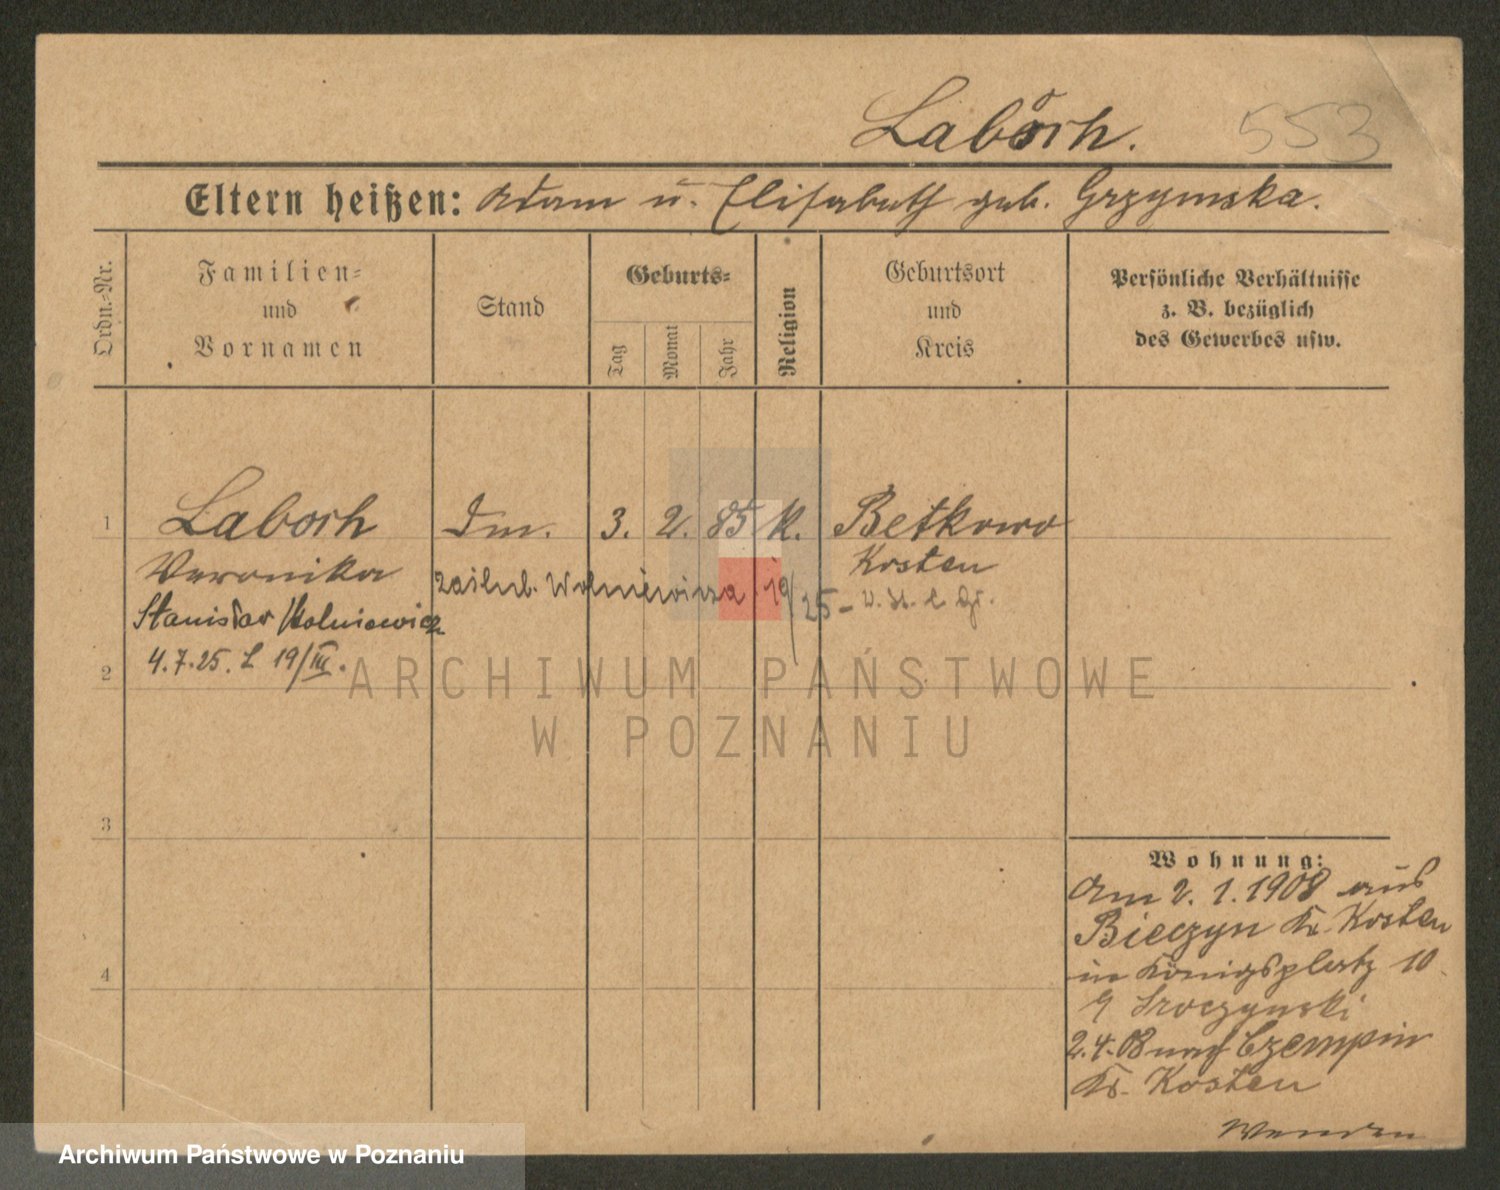 Laboch.
553
Eltern heißen: Adam u. Elisabeth geb. Grzymska.
Ordn.-Nr.
Familien-
und
Vornamen
Stand
Geburts-
Tag
Monat
Jahr
Religion
Geburtsort
und
Kreis
Persönliche Verhältnisse
z. B. bezüglich
des Gewerbes usw.
1 Laboch Dm. 3. 2. 85 K. Betkowo
Veronika Kosten
zaślub. Wolniewicza 19/25
Stanislav Wolniewicz
4.7.25. L 19/III.
2
3
4
Wohnung:
Am 2. 1. 1908 aus
Bieczyn Kr. Kosten
in Königsplatz 10
Sroczynski
2.4.08 nach Czempin
Kr. Kosten
Wenden
ARCHIWUM PAŃSTWOWE
W POZNANIU
Archiwum Państwowe w Poznaniu